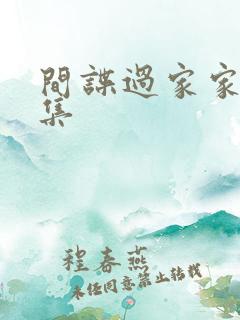 間諜過家家
集
程春燕
未任同意禁止转载